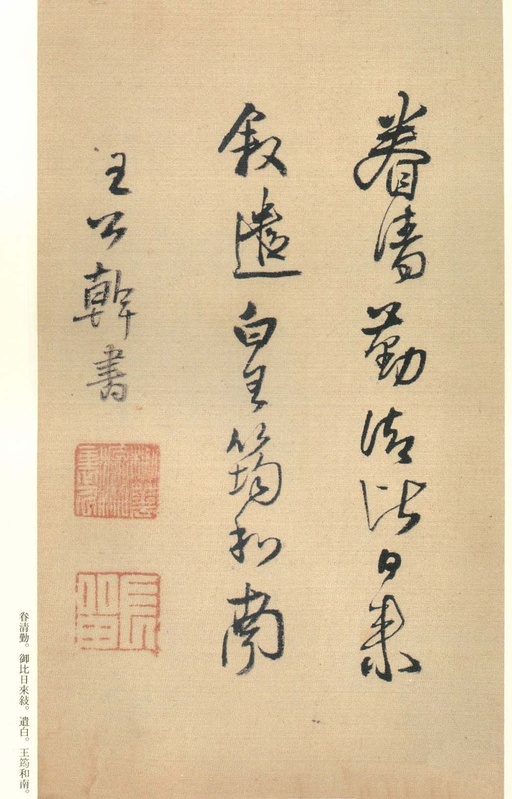 眷清勤御比日來
敍遣白王筠和南
王公幹書
眷清勤。御比日來敍。遣白。王筠和南。